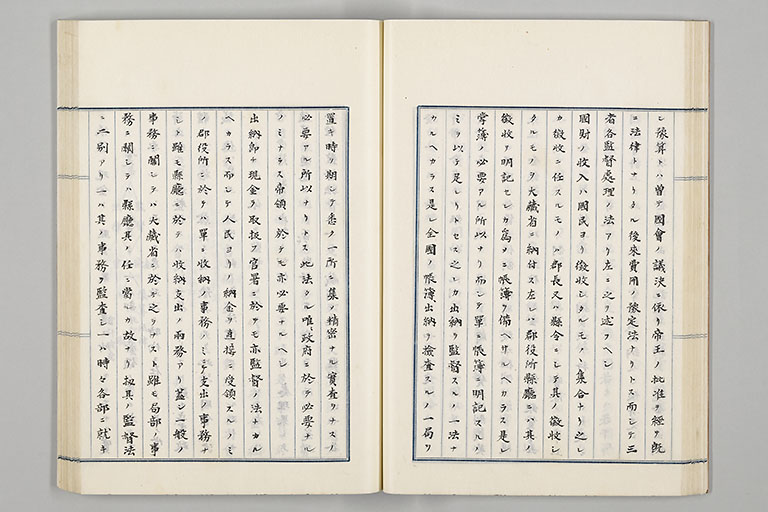 シ豫算トハ曾テ國會ノ議決ニ依リ帝王ノ批准ヲ經テ既
ニ法律トナリタル後來費用ノ豫定法ナリトス而シテ三
者各監督處理ノ法アリ左ニ之ヲ述ヘン
國財ノ收入ハ國民ヨリ徴收シタルモノヽ集合ナリ之レ
カ徴收ニ任スルモノハ郡長又ハ縣令ニシテ其ノ徴收シ
タルモノヲ大藏省ニ納付ス左レハ郡役所縣廳ニハ其ノ
徴收ヲ明記センカ為メニ帳簿ヲ備ヘサルヘカラス是レ
帳簿ノ必要アル所以ナリ而シテ單ニ帳簿ニ明記スルノ
ミヲ以テ足レリトセス之レカ出納ヲ監督スルノ一法ナ
カルヘカラス是レ全國ノ帳簿出納ヲ檢査スルノ一局ヲ
置キ時ヲ期シテ悉ク一所ニ集メ精密ナル實査ヲナスノ
必要アル所以ナリトス此法タル唯政府ニ於テ必要ナル
ノミナラス帝領ニ於テモ亦必要ナルヘシ
出納即チ現金ヲ取扱フ官署ニ於テモ亦監督ノ法ナカル
ヘカラス而シテ人民ヨリノ納金ヲ直接ニ受領スルノミ
ノ郡役所ニ於テハ單ニ收納ノ事務ノミニテ支出ノ事務ナ
シト雖モ縣廳ニ於テハ收納支出ノ兩務アリ蓋シ一般ノ
事務ニ關シテハ大藏省ニ於テ之ヲナスト雖モ局部ノ事
務ニ關シテハ縣廳其ノ任ニ當ルカ故ナリ扨其ノ監督法
ニ二別アリ一ハ其ノ事務ヲ監査シ一ハ時々各部ニ就キ